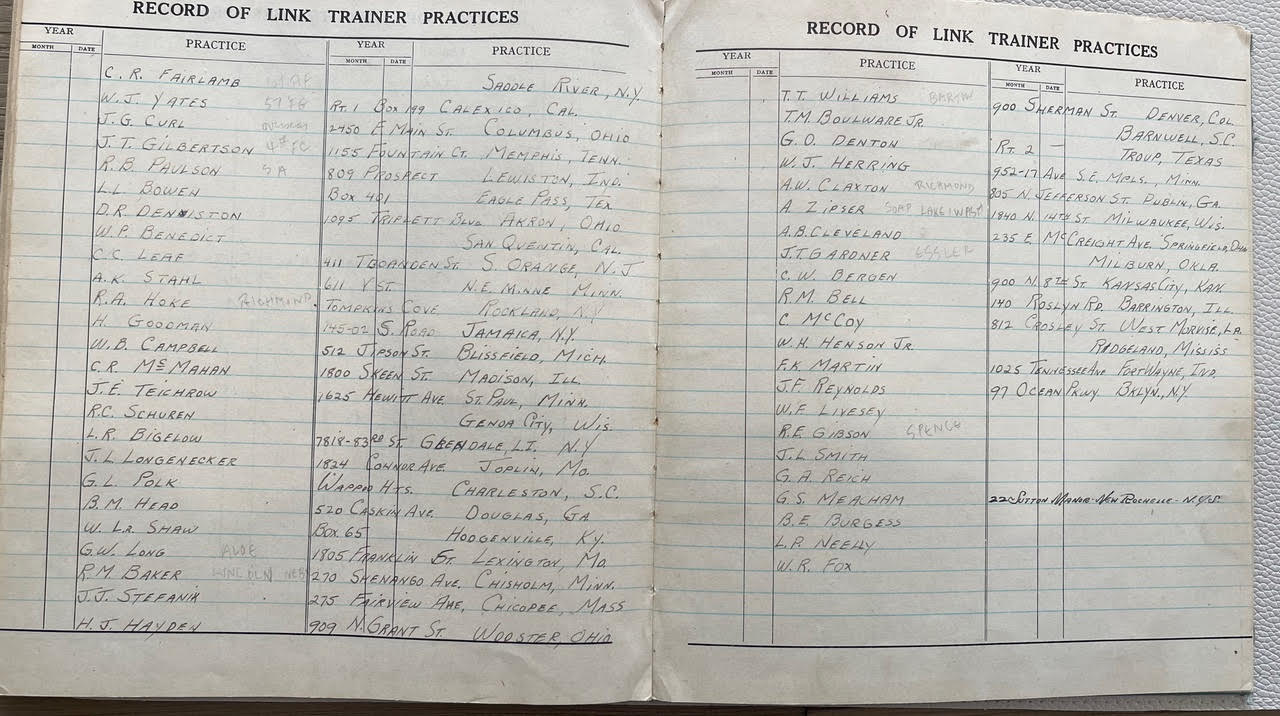 RECORD OF LINK TRAINER PRACTICES
YEAR PRACTICE YEAR PRACTICE
MONTH DATE MONTH DATE
C. R. FAIRLAMB SADDLE RIVER, N.Y.
W. J. YATES 57 FG RT. 1 BOX 199 CALEXICO, CAL.
J. G. CURL OVERSEAS 2450 E MAIN ST. COLUMBUS, OHIO
J. T. GILBERTSON 4TH FC 1155 FOUNTAIN CT. MEMPHIS, TENN.
R. B. PAULSON SA 809 PROSPECT LEWISTON, IND.
L. L. BOWEN BOX 401 EAGLE PASS, TEX
D. R. DENNISTON 1095 TRIPLETT BLVD. AKRON, OHIO
W. P. BENEDICT SAN QUENTIN, CAL.
C. C. LEAF 411 ST. S. ORANGE, N. J
A. K. STAHL 611 Y ST. N.E. MINNE MINN.
R. A. HOKE RICHMOND. TOMPKINS COVE ROCKLAND, N.Y
H. GOODMAN 145-02 S. ROAD JAMAICA, N.Y.
W. B. CAMPBELL 512 JIPSON ST. BLISSFIELD, MICH.
C. R. McMAHAN 1800 SKEEN ST. MADISON, ILL.
J. E. TEICHROW 1625 HEWITT AVE ST. PAUL, MINN.
R. C. SCHUREN GENOA CITY, WIS.
L. R. BIGELOW 7818-83RD ST. GLENDALE, L.I. N.Y
J. L. LONGENECKER 1824 CONNOR AVE. JOPLIN, MO.
G. L. POLK WAPPOO HTS. CHARLESTON, S.C.
B. M. HEAD 520 GASKIN AVE. DOUGLAS, GA
W. LA SHAW BOX 65 HODGENVILLE, KY.
G. W. LONG ALOE 1805 FRANKLIN ST. LEXINGTON, MO
R. M. BAKER LINCOLN NEB 270 SHENANGO AVE. CHISHOLM, MINN.
J. J. STEFANIK 275 FAIRVIEW AVE, CHICOPEE, MASS
H. J. HAYDEN 909 N. GRANT ST. WOOSTER, OHIO
RECORD OF LINK TRAINER PRACTICES
YEAR PRACTICE YEAR PRACTICE
MONTH DATE MONTH DATE
T. T. WILLIAMS BARTOW 900 SHERMAN ST. DENVER, COL
T. M. BOULWARE JR. BARNWELL, S.C.
G. O. DENTON RT. 2 — TROUP, TEXAS
W. J. HERRING 952-17 AVE S.E. MPLS., MINN.
A. W. CLAXTON RICHMOND 805 N. JEFFERSON ST. DUBLIN, GA.
A. ZIPSER SOAP LAKE, WASH 1840 N. 14TH ST MILWAUKEE, WIS.
A. B. CLEVELAND 235 E. McCREIGHT AVE. SPRINGFIELD, OHIO
J. T. GARDNER ESSLER MILBURN, OKLA.
C. W. BERGEN 900 N. 8TH ST KANSAS CITY, KAN.
R. M. BELL 140 ROSLYN RD. BARRINGTON, ILL.
C. McCOY 812 CROSLEY ST. WEST MONROE, LA.
W. H. HENSON JR. RIDGELAND, MISSISS
F. K. MARTIN 1025 TENNESSEE AVE FORT WAYNE, IND.
J. F. REYNOLDS 97 OCEAN PKWY BKLYN., N.Y.
W. F. LIVESEY
R. E. GIBSON SPENCE
J. L. SMITH
G. A. REICH
G. S. MEACHAM 22 SUTTON MANOR - NEW ROCHELLE - N.Y.S.
B. E. BURGESS
L. P. NEELLY
W. R. FOX